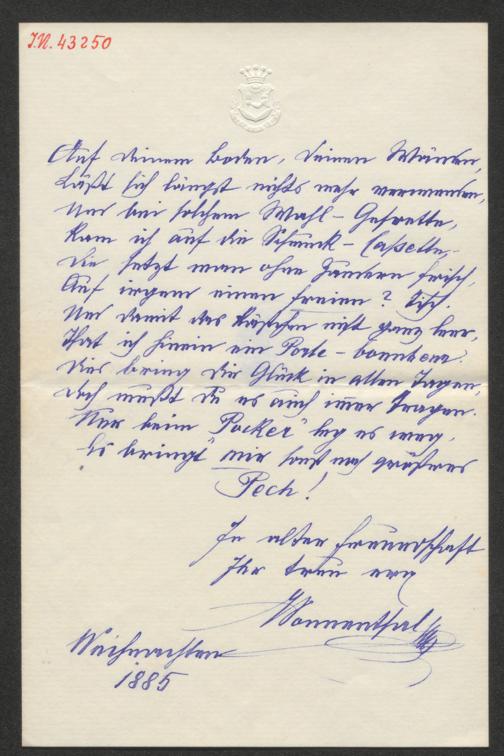 I.N. 43250
Auf deinem Boden, deinen Wänden,
Läßt sich längst nichts mehr verwenden,
Und bei solchem Wahl-Gefrette,
Kam ich auf die Schmuck-Casette,
Die setzt man ohne Zaudern frisch,
Auf irgend einen freien? Tisch.
Und damit das Kästchen nicht ganz leer,
That ich hinein ein Porte-bonheur:
Dies bring Dir Glück in allen Tagen,
Doch mußt du es auch immer tragen.
Nur beim "Pocker" leg es weg,
Es bringt mir sonst noch größres
Pech!
In alter Freundschaft
Ihr treu erg
Sonnenthal
Weihnachten
1885